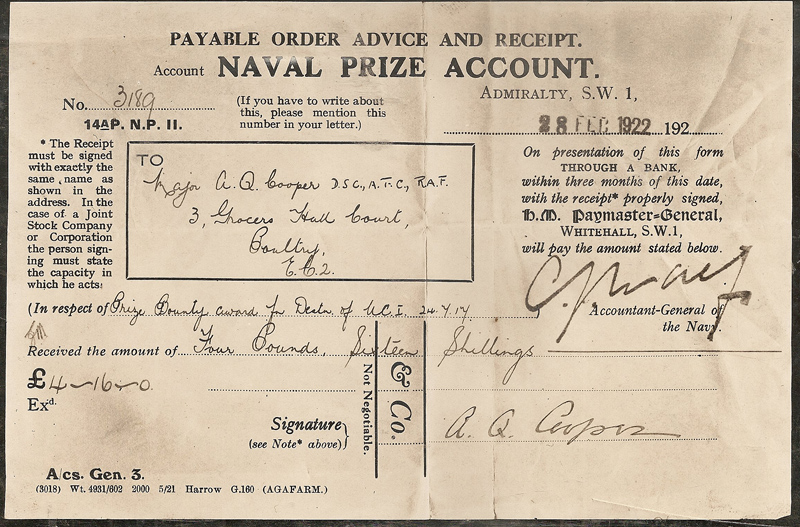 PAYABLE ORDER ADVICE AND RECEIPT.
Account NAVAL PRIZE ACCOUNT.
No. 3189
14AP. N.P. II.
(If you have to write about
this, please mention this
number in your letter.)
ADMIRALTY, S.W. 1,
28 FEB 1922 192
* The Receipt
must be signed
with exactly the
same name as
shown in the
address. In the
case of a Joint
Stock Company
or Corporation
the person sign-
ing must state
the capacity in
which he acts
TO
Major A. Q. Cooper D.S.C., A.F.C., R.A.F.
3, Grocers Hall Court,
Poultry,
E.C.2.
On presentation of this form
THROUGH A BANK,
within three months of this date,
with the receipt* properly signed,
H.M. Paymaster-General,
WHITEHALL, S.W.1,
will pay the amount stated below.
Accountant-General of
the Navy.
(In respect of Prize Bounty award for Destn. of U.C.1. 24.7.17
Received the amount of Four Pounds, Sixteen Shillings
£4-16-0
Exd.
& Co.
Not Negotiable.
Signature
(see Note* above)
A. Q. Cooper
A/cs. Gen. 3.
(3018) Wt. 4931/602 2000 5/21 Harrow G.160 (AGAFARM.)